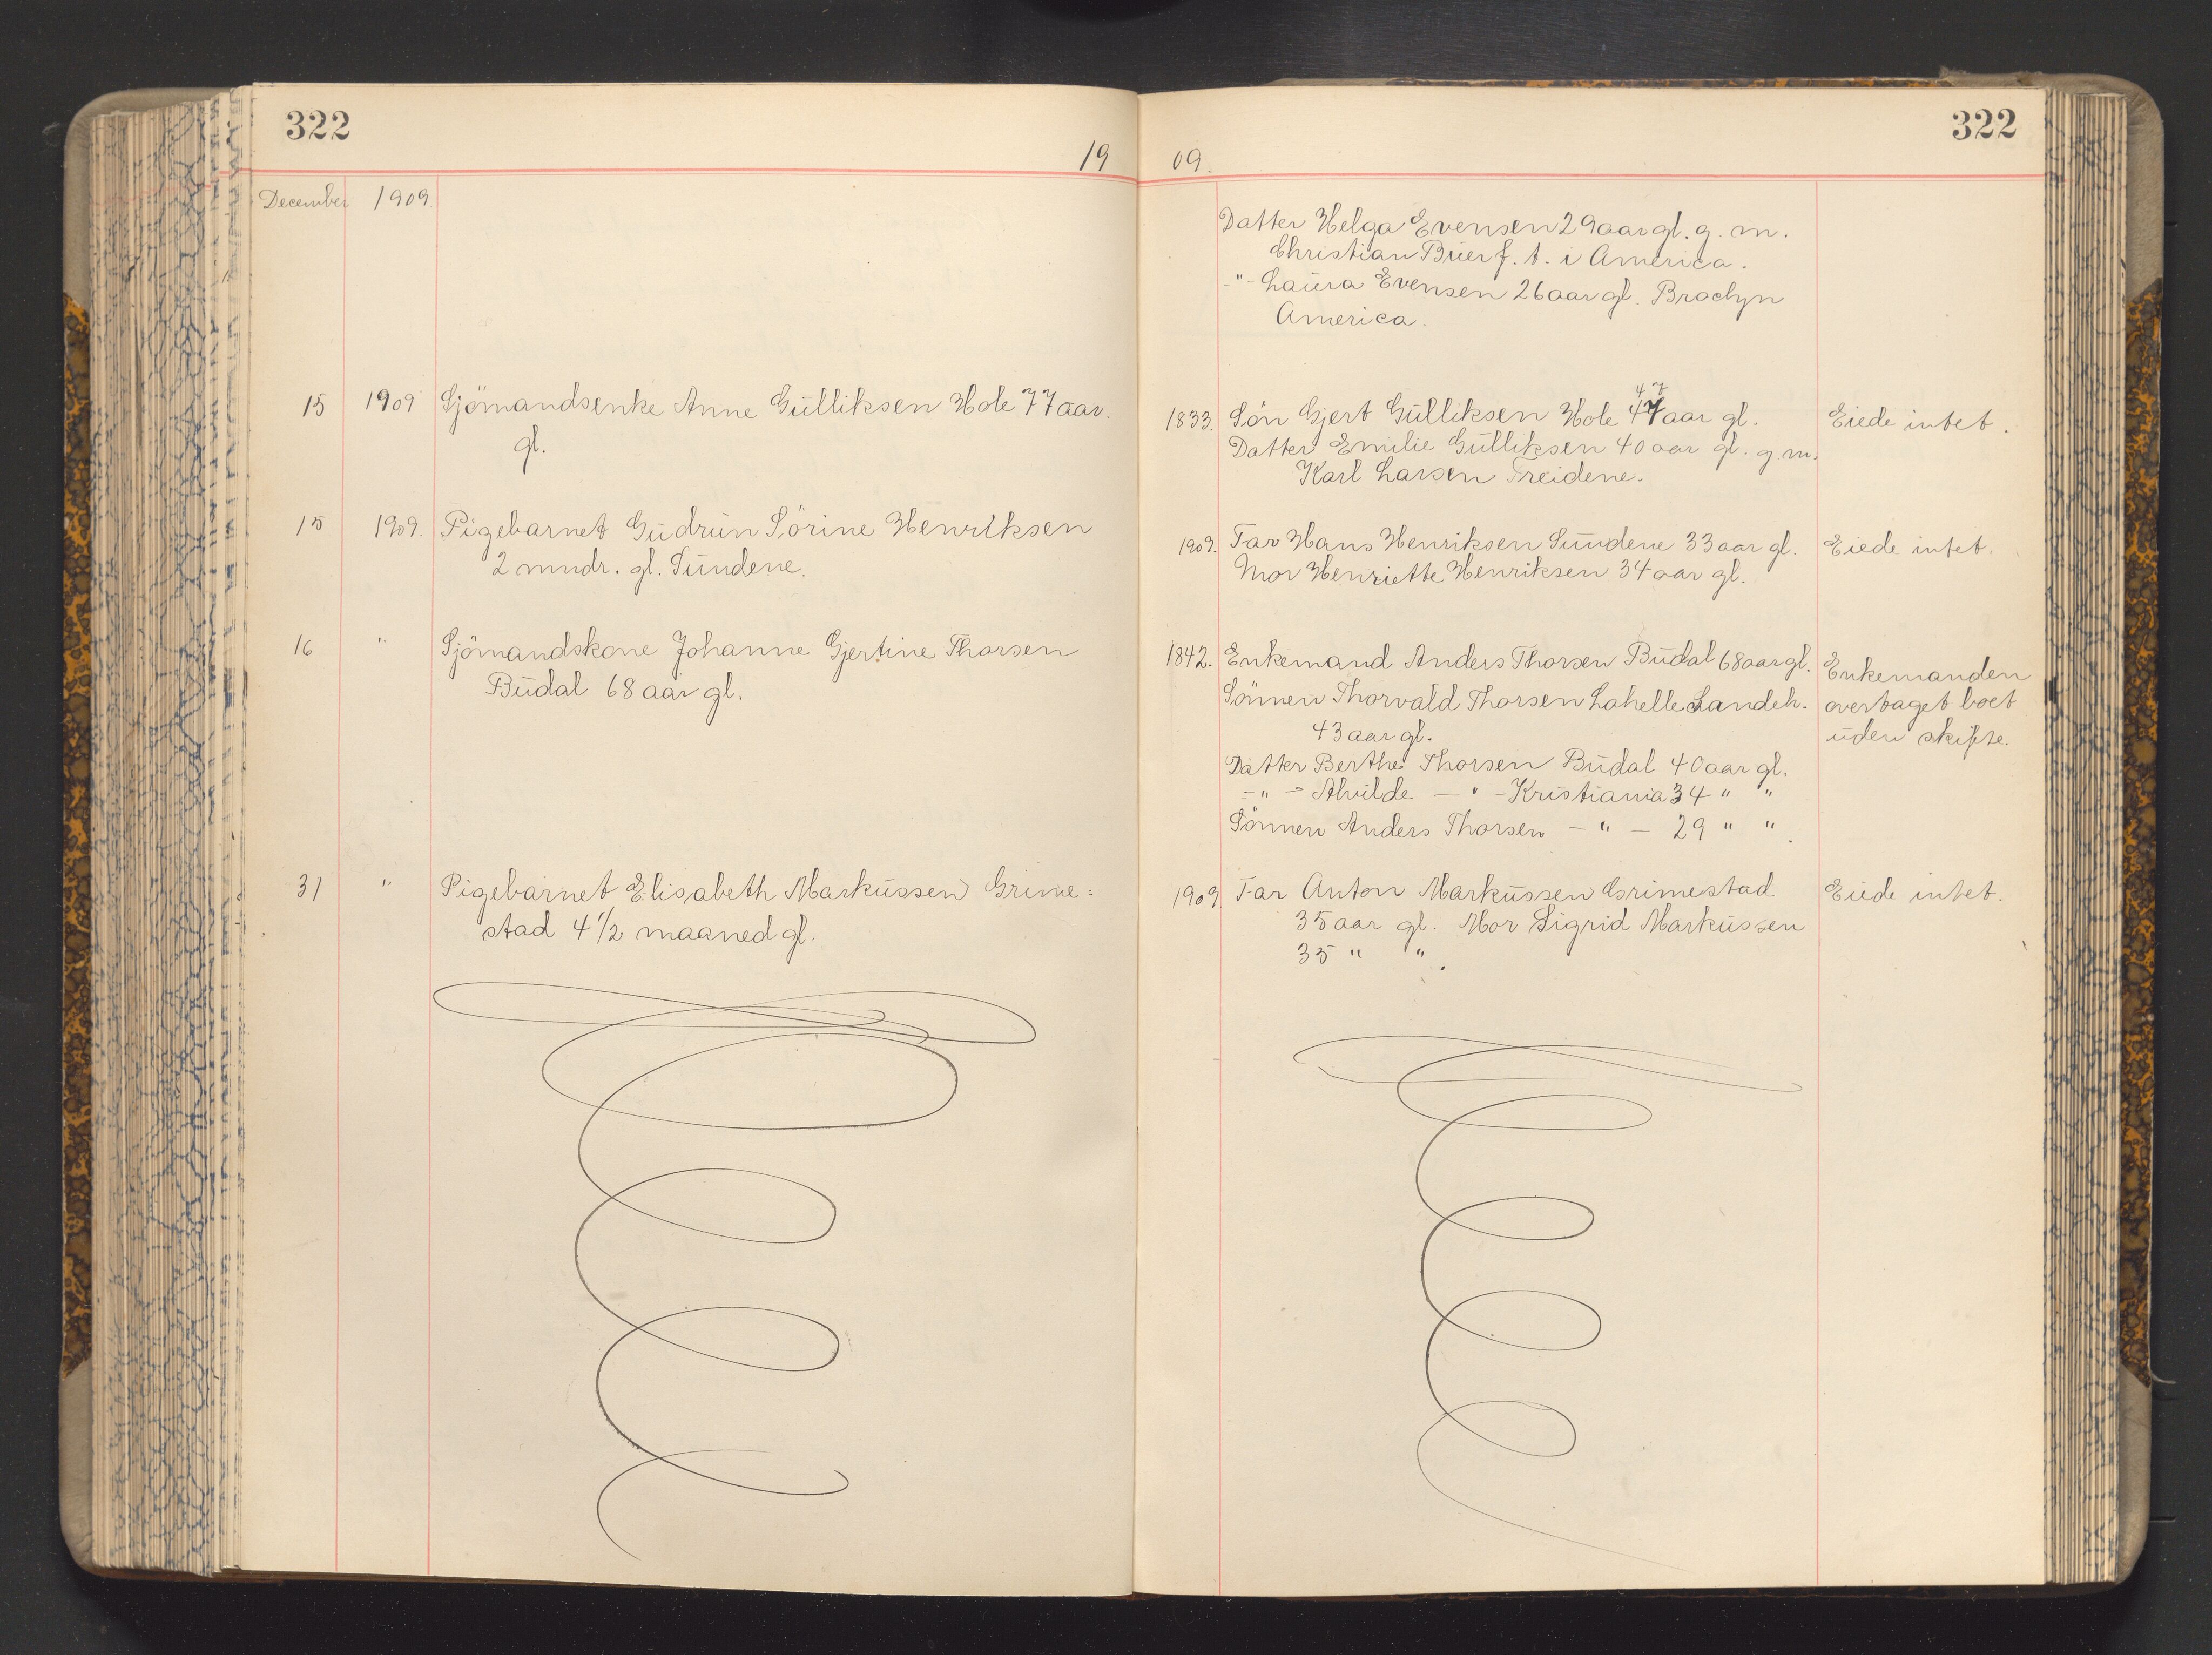 322
19
December 1909.
15 1909 Sjömandsenke Anne Gulliksen Hole 77 aar.
gl.
15 1909. Pigebarnet Gudrun Sörine Henriksen
2 mndr. gl. Sundene.
16 " Sjömandskone Johanne Gjertine Thorsen
Budal 68 aar gl.
31 " Pigebarnet Elisabeth Markussen Grime=
stad 4 1/2 maaned gl.
322
09.
Datter Helga Evensen 29 aar gl. g. m.
Christian Buer f. t. i America.
-"- Laura Evensen 26 aar gl. Braclyn
America.
47
1833. Sön Gjert Gulliksen Hole 47 aar gl. Eiede intet.
Datter Emilie Gulliksen 40 aar gl. g. m.
Karl Larsen Treidene.
1909. Far Hans Henriksen Sundene 33 aar gl. Eiede intet.
Mor Henriette Henriksen 34 aar gl.
1842. Enkemand Anders Thorsen Budal 68 aar gl. Enkemanden
Sönnen Thorvald Thorsen Lahelle Landeh. overtaget boet
43 aar gl. uden skifte.
Datter Berthe Thorsen Budal 40 aar gl.
-"- Alvilde -"- Kristiania 34 " "
Sönnen Anders Thorsen -"- 29 " ".
1909. Far Anton Markussen Grimestad Eiede intet.
35 aar gl. Mor Sigrid Markussen
35 " ".